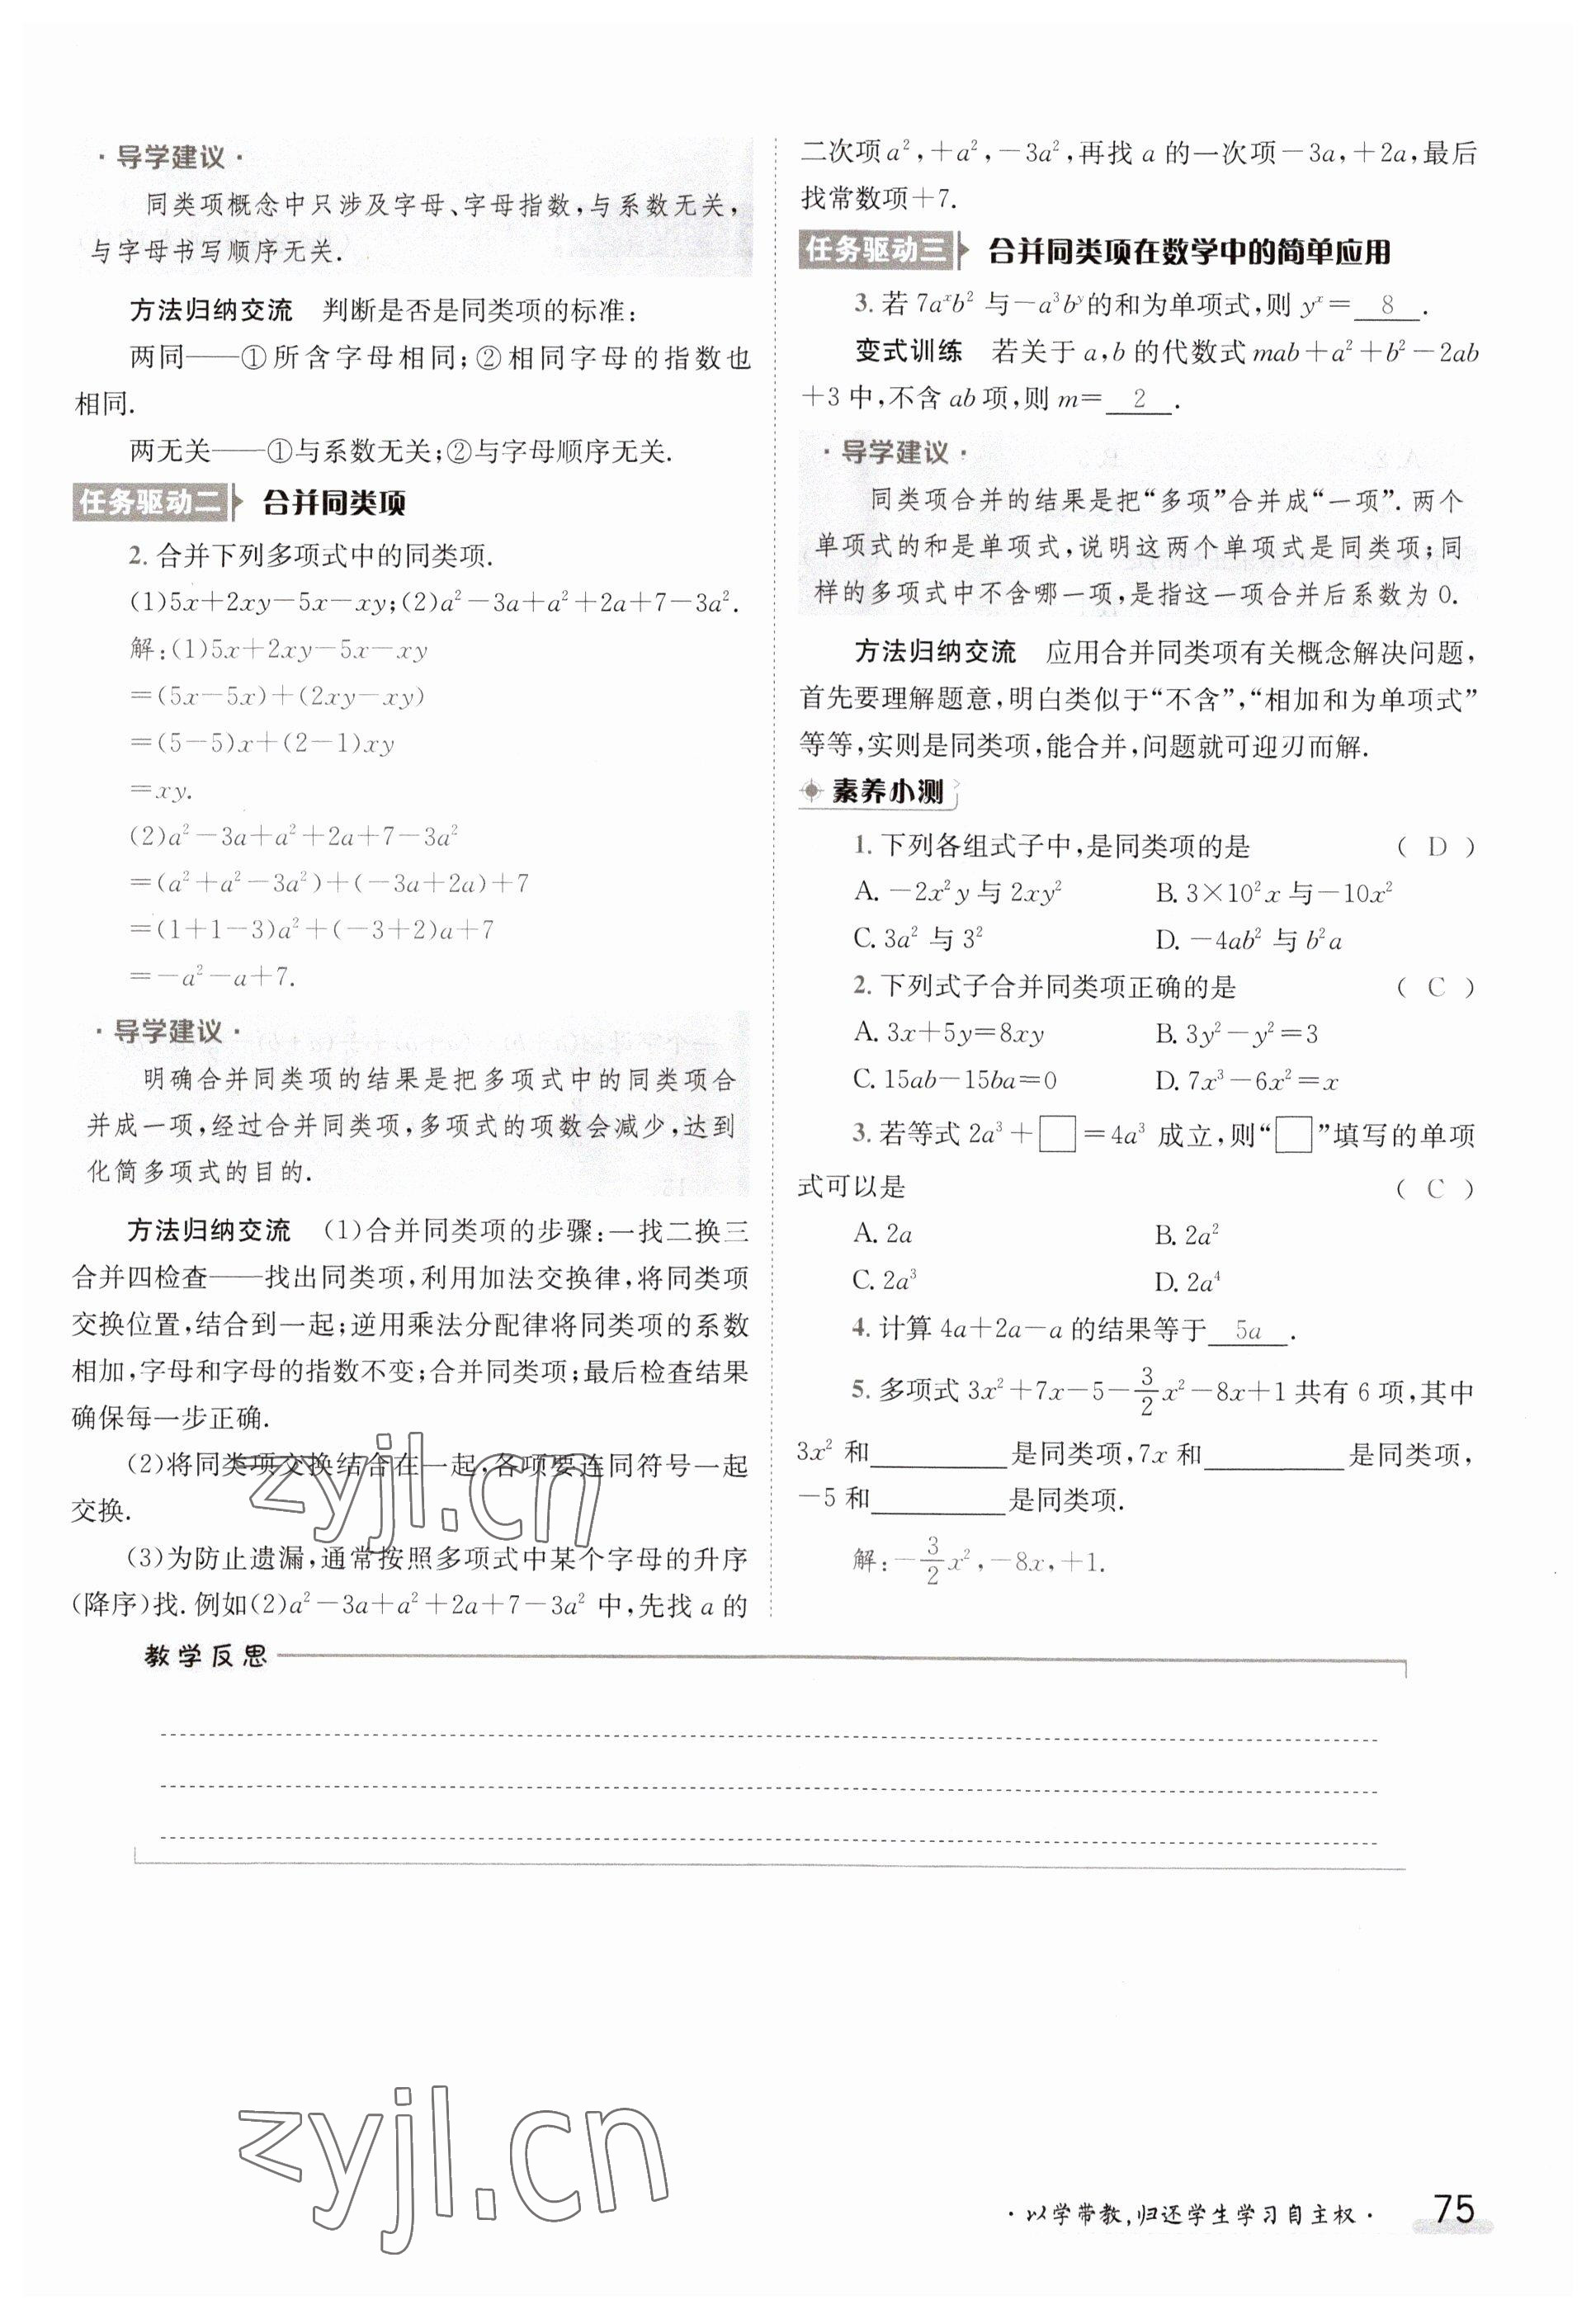 ·导学建议·
同类项概念中只涉及字母、字母指数,与系数无关,
与字母书写顺序无关.
方法归纳交流 判断是否是同类项的标准:
两同——①所含字母相同;②相同字母的指数也
相同.
两无关——①与系数无关;②与字母顺序无关.
任务驱动二 合并同类项
2. 合并下列多项式中的同类项.
(1)5x+2xy-5x-xy;(2)a²-3a+a²+2a+7-3a².
解:(1)5x+2xy-5x-xy
=(5x-5x)+(2xy-xy)
=(5-5)x+(2-1)xy
=xy.
(2)a²-3a+a²+2a+7-3a²
=(a²+a²-3a²)+(-3a+2a)+7
=(1+1-3)a²+(-3+2)a+7
=-a²-a+7.
·导学建议·
明确合并同类项的结果是把多项式中的同类项合
并成一项,经过合并同类项,多项式的项数会减少,达到
化简多项式的目的.
方法归纳交流 (1)合并同类项的步骤:一找二换三
合并四检查——找出同类项,利用加法交换律,将同类项
交换位置,结合到一起;逆用乘法分配律将同类项的系数
相加,字母和字母的指数不变;合并同类项;最后检查结果
确保每一步正确.
(2)将同类项交换结合在一起,各项要连同符号一起
交换.
(3)为防止遗漏,通常按照多项式中某个字母的升序
(降序)找. 例如(2)a²-3a+a²+2a+7-3a² 中,先找 a 的
二次项 a²,+a²,-3a²,再找 a 的一次项-3a,+2a,最后
找常数项+7.
任务驱动三 合并同类项在数学中的简单应用
3. 若 7aˣb² 与-a³bʸ的和为单项式,则 yˣ= 8 .
变式训练 若关于 a,b 的代数式 mab+a²+b²-2ab
+3 中,不含 ab 项,则 m= 2 .
·导学建议·
同类项合并的结果是把“多项”合并成“一项”. 两个
单项式的和是单项式,说明这两个单项式是同类项;同
样的多项式中不含哪一项,是指这一项合并后系数为 0.
方法归纳交流 应用合并同类项有关概念解决问题,
首先要理解题意,明白类似于“不含”,“相加和为单项式”
等等,实则是同类项,能合并,问题就可迎刃而解.
素养小测
1. 下列各组式子中,是同类项的是 ( D )
A. -2x²y 与 2xy² B. 3×10²x 与-10x²
C. 3a² 与 3² D. -4ab² 与 b²a
2. 下列式子合并同类项正确的是 ( C )
A. 3x+5y=8xy B. 3y²-y²=3
C. 15ab-15ba=0 D. 7x³-6x²=x
3. 若等式 2a³+□=4a³ 成立,则“□”填写的单项
式可以是 ( C )
A. 2a B. 2a²
C. 2a³ D. 2a⁴
4. 计算 4a+2a-a 的结果等于 5a .
5. 多项式 3x²+7x-5-3/2x²-8x+1 共有 6 项,其中
3x² 和________是同类项,7x 和________是同类项,
-5 和________是同类项.
解:-3/2x²,-8x,+1.
教学反思
zyjl.cn
zyjl.cn
·以学带教,归还学生学习自主权· 75